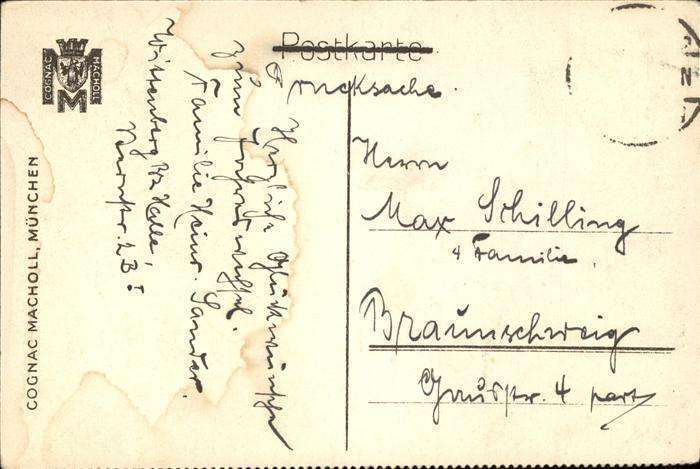 COGNAC
MACHOLL
M
COGNAC MACHOLL, MÜNCHEN
Postkarte
Drucksache.
Herzliche Glückwünsche
zum Jahreswechsel.
Familie Heinr. Sander.
Wittenberg Bz Halle,
Herrn
Max Schilling
u Familie.
Braunschweig
Gausstr. 4 part